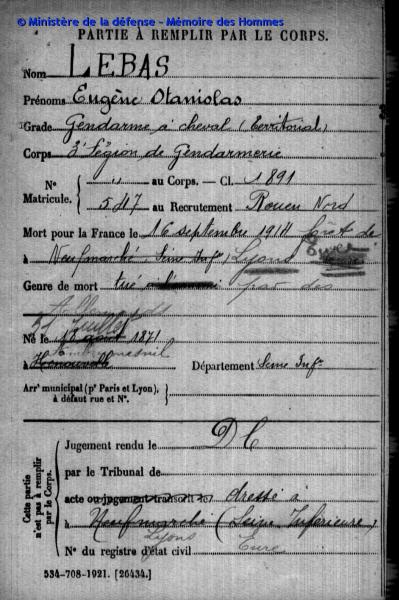 © Ministère de la défense - Mémoire des Hommes
PARTIE À REMPLIR PAR LE CORPS.
Nom LEBAS
Prénoms Eugène Stanislas
Grade Gendarme à cheval (Territorial)
Corps 3e Légion de Gendarmerie
N° Matricule. " au Corps. — Cl. 1891
547 au Recrutement Rouen Nord
Mort pour la France le 16 septembre 1914 forêt de
à Neufmarché Seine Infre Lyons Eure
Genre de mort tué par des
Allemands
31 Juillet
Né le 18 août 1871
à Hénouville Département Seine Infre
Arrt municipal (pr Paris et Lyon), à défaut rue et N°.
Cette partie n'est pas à remplir par le Corps.
Jugement rendu le DC
par le Tribunal de
acte ou jugement transcrit le dressé à
à Neufmarché (Seine Inférieure)
Lyons Eure
N° du registre d'état civil
534-708-1921. [26434.]